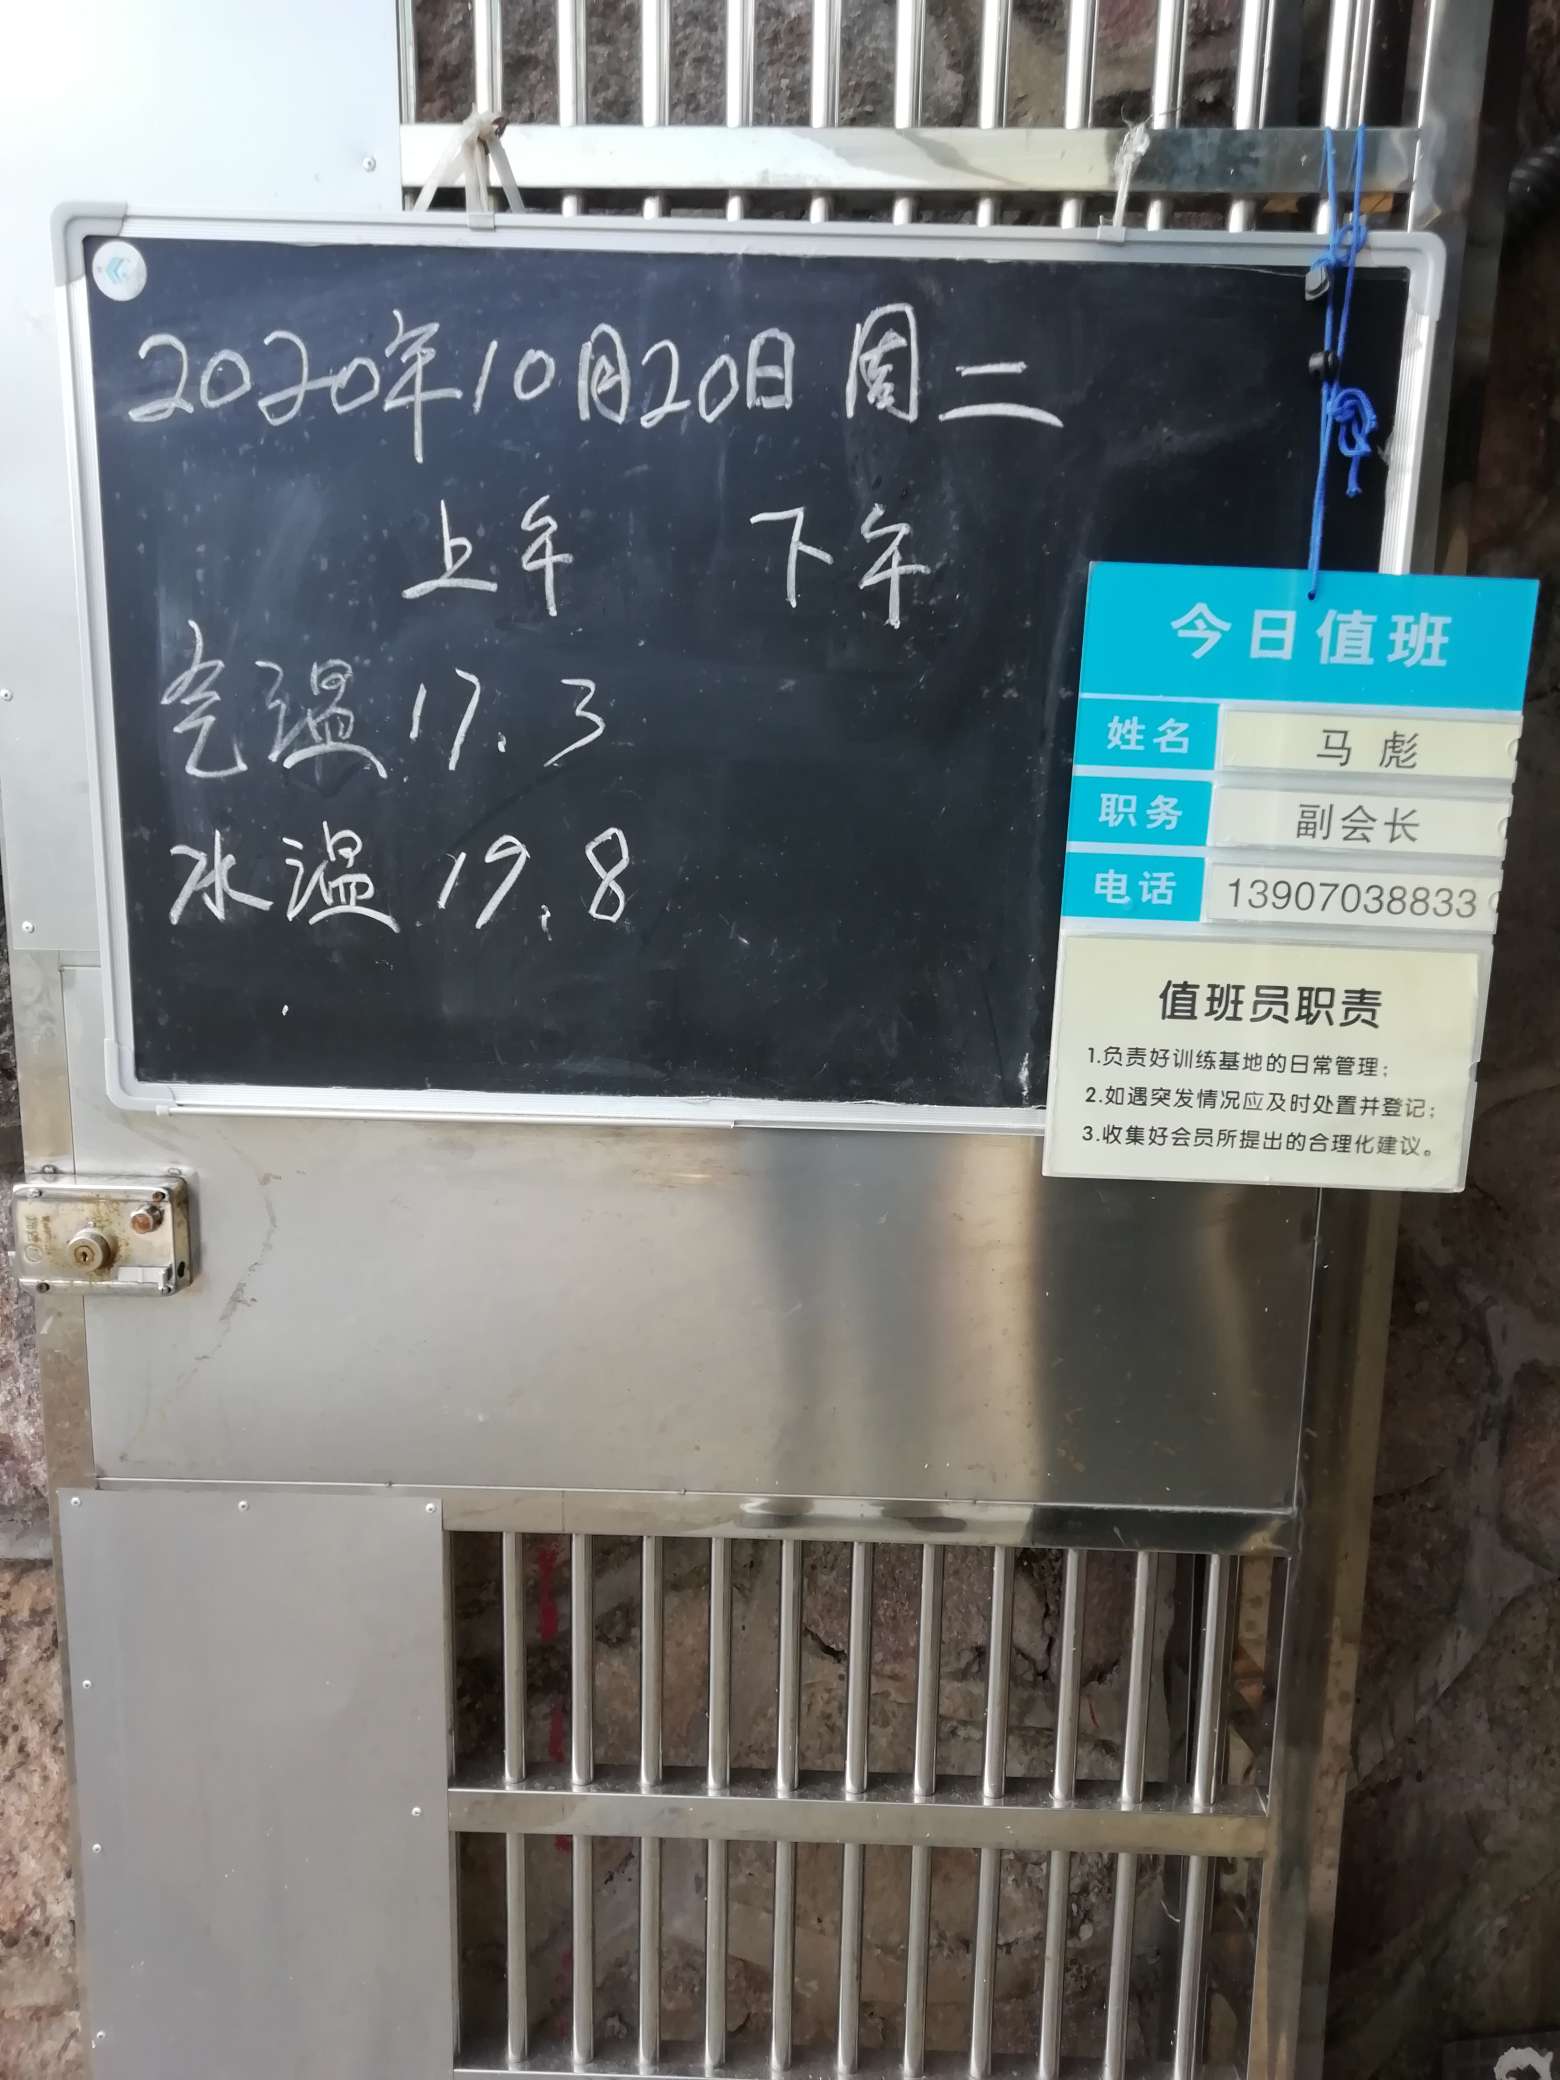 2020年10月20日 周二
上午 下午
气温 17.3
水温 19.8
今日值班
姓名 马彪
职务 副会长
电话 13907038833
值班员职责
1.负责好训练基地的日常管理;
2.如遇突发情况应及时处置并登记;
3.收集好会员所提出的合理化建议。